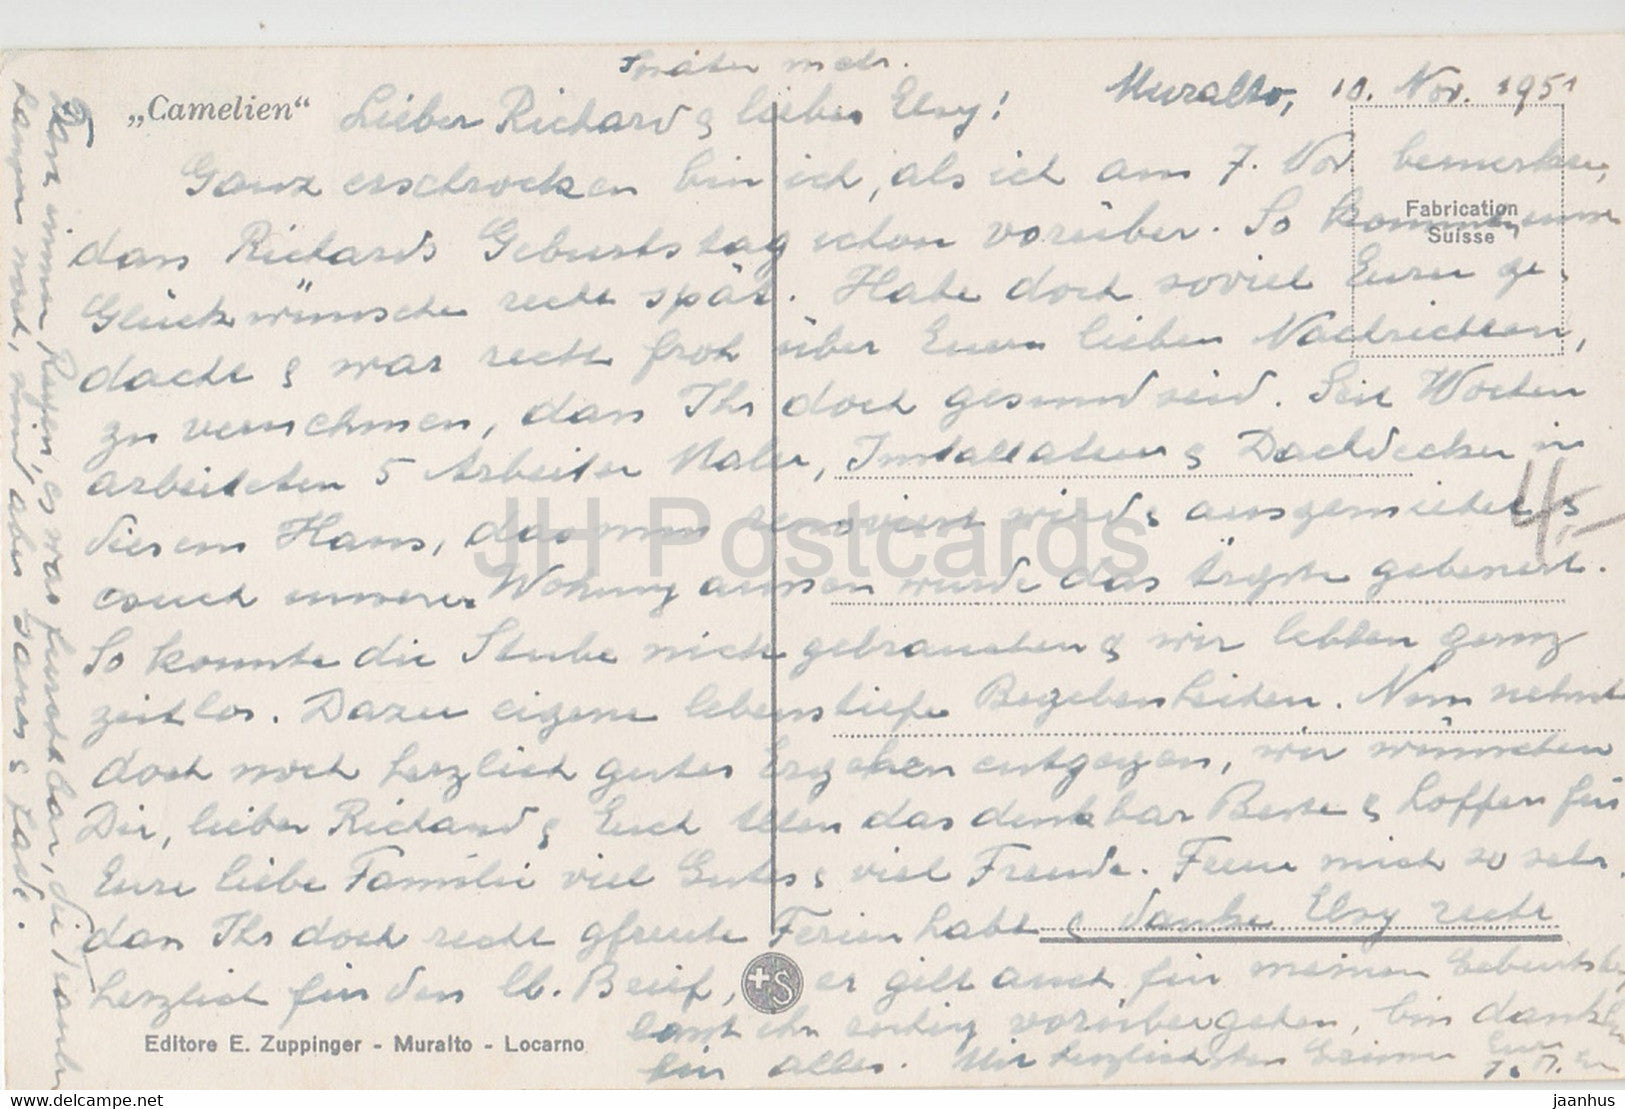 Später mehr.
„Camelien“
Muralto, 10. Nov. 1951
Lieber Richard & liebes Elsy!
Ganz erschrocken bin ich, als ich am 7. Nov. bemerkte,
dass Richards Geburtstag schon vorüber. So kommen unsere
Glückwünsche recht spät. Habe doch soviel Eurer ge-
dacht & war recht froh über Euren lieben Nachrichten,
zu vernehmen, dass Ihr doch gesund seid. Seit Wochen
arbeiteten 5 Arbeiter Maler, Installateur & Dachdecker in
diesem Haus, das nun renoviert wird & ausgemietet &
auch unserer Wohnung aussen wurde das ärgste gebessert.
So konnte die Stube nicht gebrauchen & wir lebten ganz
zeitlos. Dazu eigene lebenstiefe Begebenheiten. Nun nehmt
doch noch herzlich gutes Ergehen entgegen, wir wünschen
Dir, lieber Richard & Euch allen das denkbar Beste & hoffen für
Eure liebe Familie viel Gutes & viel Freude. Freue mich so sehr,
dass Ihr doch recht gfreute Ferien habt & danke Elsy recht
herzlich für den lb. Brief, er gilt auch für meinen Geburtstag,
lasst ihn ruhig vorübergehen, bin dankbar
für alles. Mit herzlichsten Grüssen Eure
Dann immer Regen, es war furchtbar, die
Lampen nass, sind aber Ganos & Lade.
Fabrication
Suisse
4,-
+S
Editore E. Zuppinger - Muralto - Locarno
JH Postcards
www.delcampe.net
jaanhus